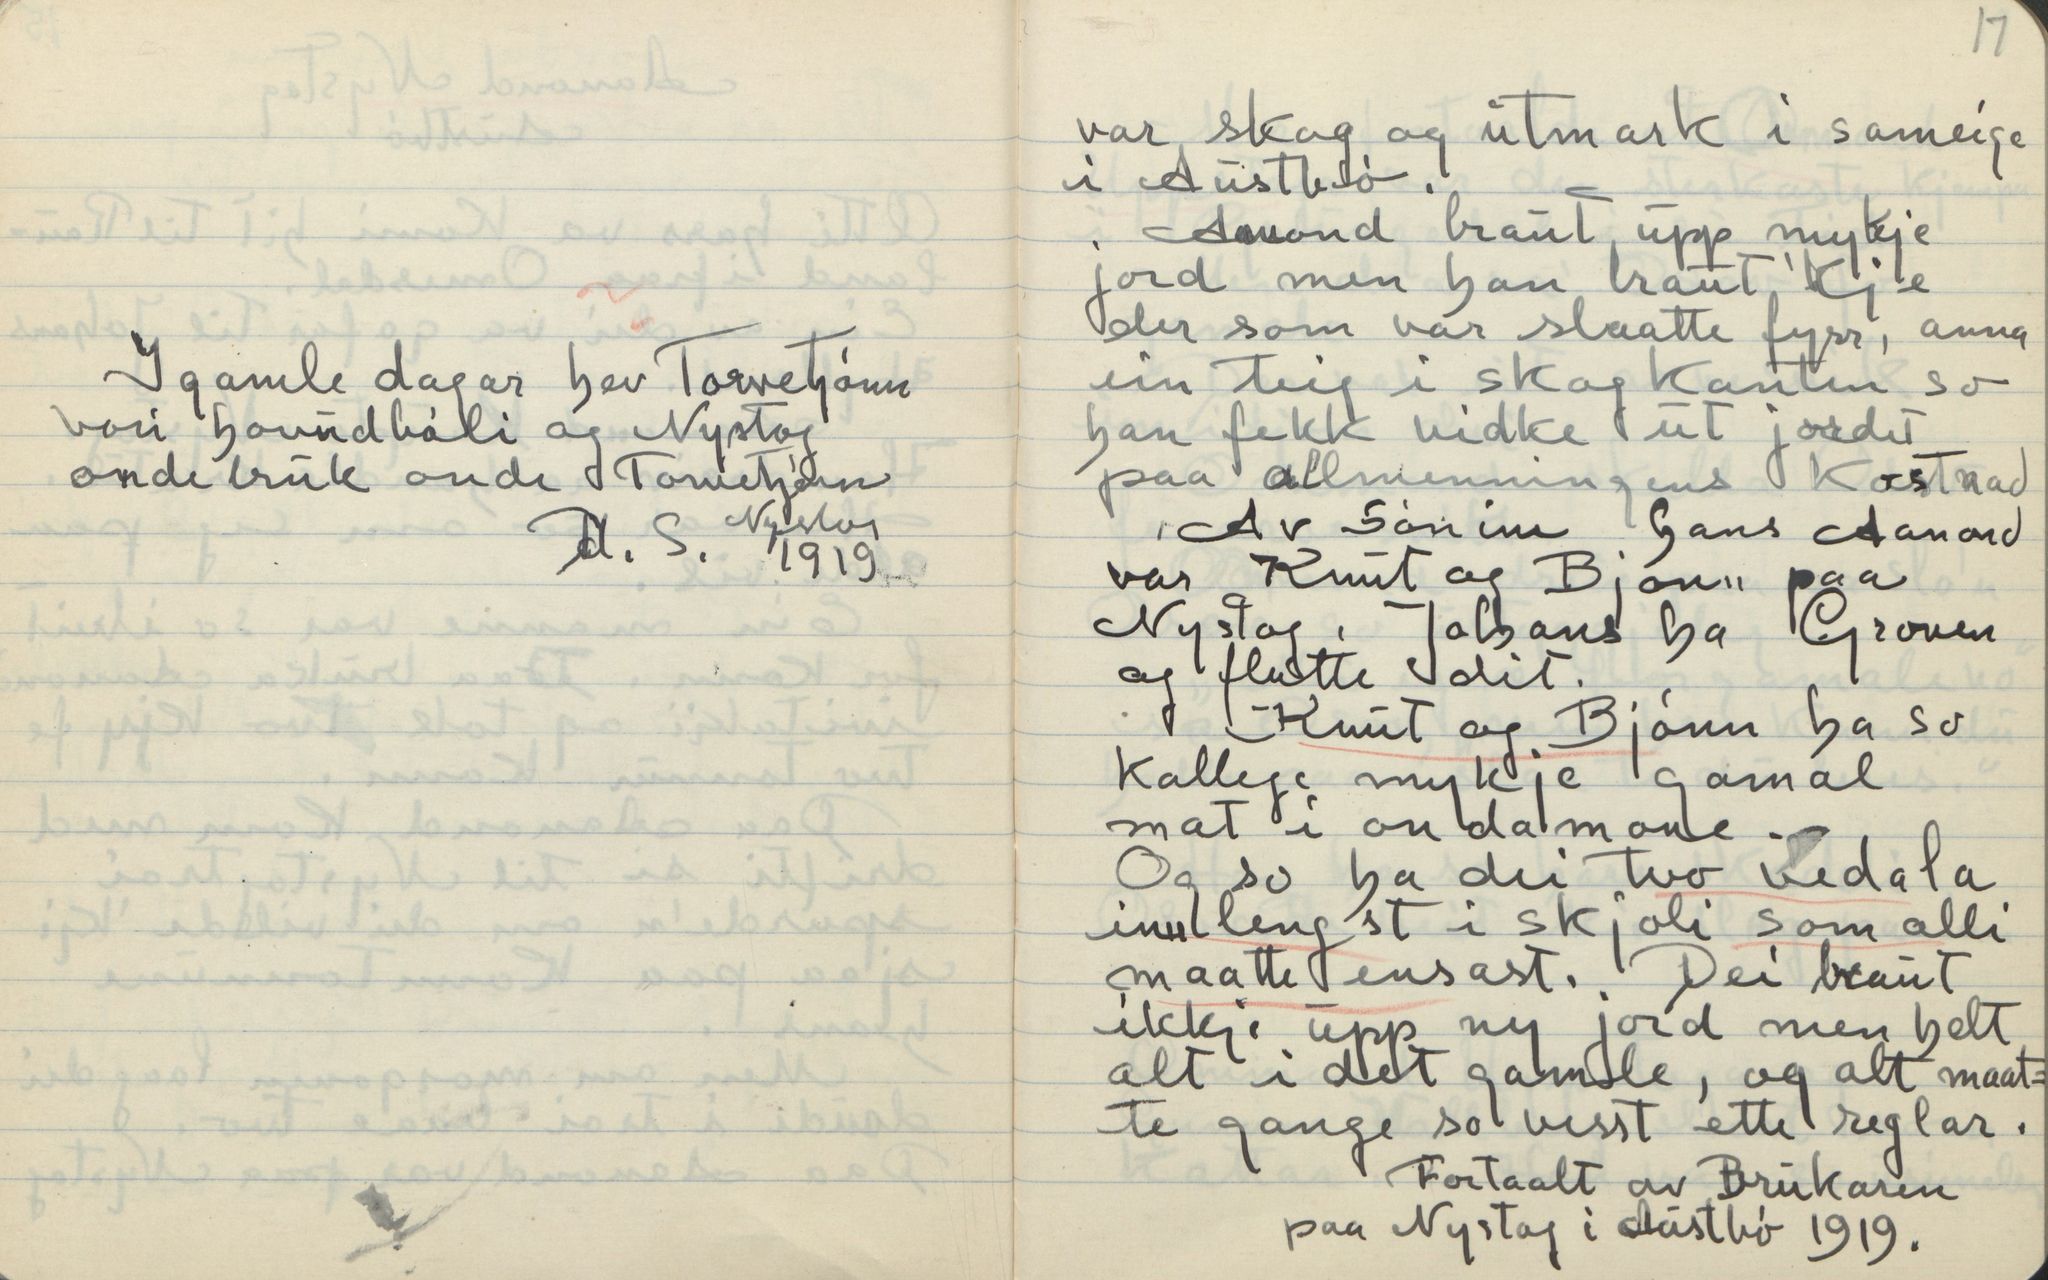 I gamle dagar hev Torvetjónn
vori hovudbóli og Nystog
onde bruk onde Torvetjónn
H. S. Nystog
1919
17
var skog og utmark i sameige
i Austbó.
Amond braut upp mykje
jord men han braut kje
der som var slaatte fyrr, anna
ein teig i skogkanten so
han fekk vidke ut jordet
paa allmenningens kostnad
Av sónine hans Aamond
var Knut og Bjónn paa
Nystog. Johans ha Groven
og flutte dit.
Knut og Bjónn ha so
kallege mykje gamal
mat i ondamone.
Og so ha dei two vedala
innlengst i skjoli som alli
maatte ensast. Dei braut
ikkje upp ny jord men helt
alt i det gamle, og alt maat=
te gange so visst ette reglar.
Fortaalt av Brukaren
paa Nystog i Austbó 1919.